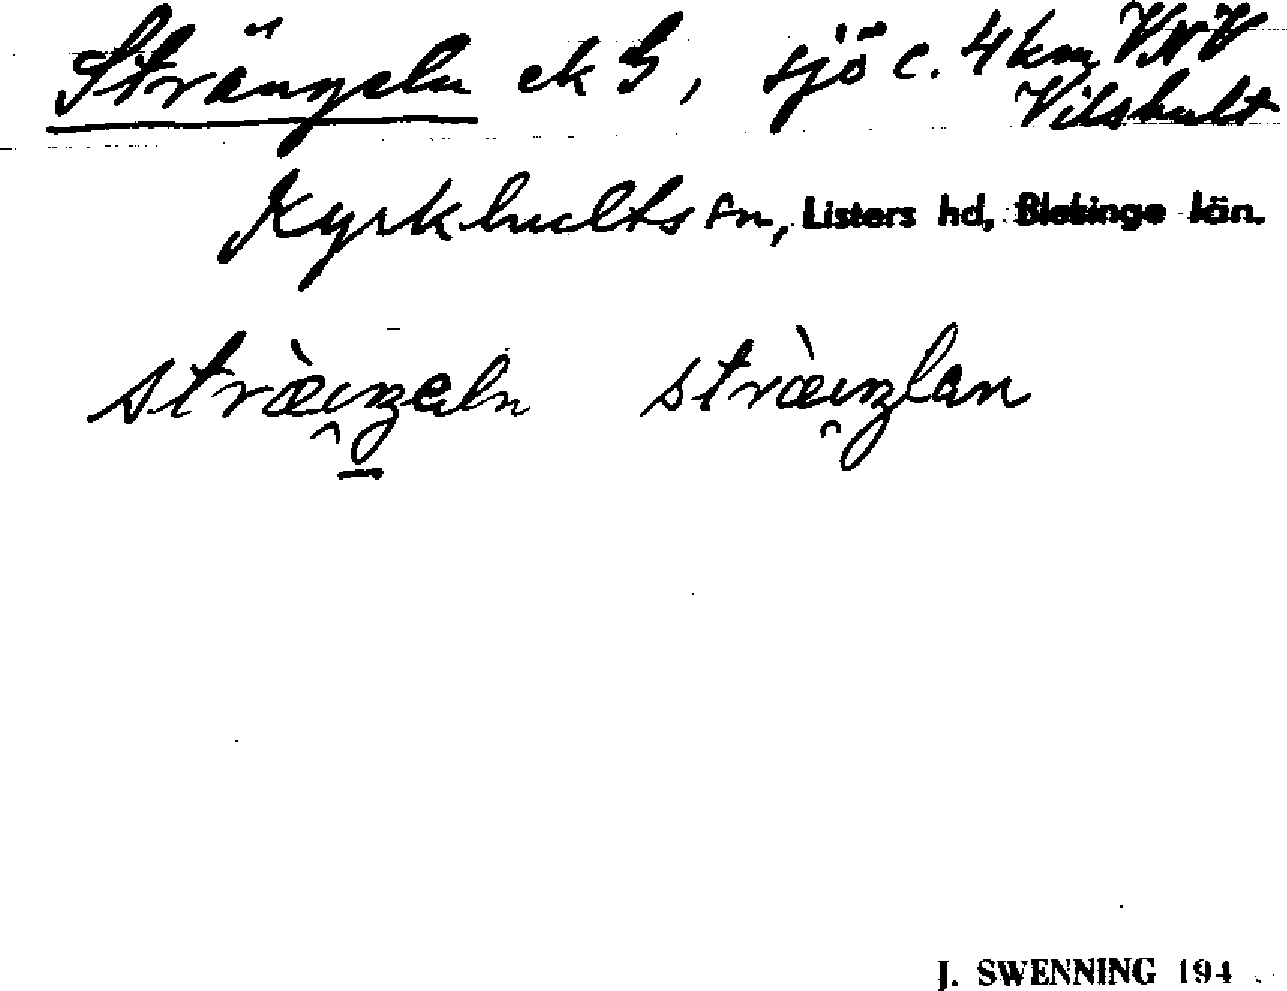 Strängeln ek S, sjö c. 4 km VNV
Vilshult
Kyrkhults sn, Listers hd, Blekinge län.
stràŋeln stràŋlan
J. SWENNING 194